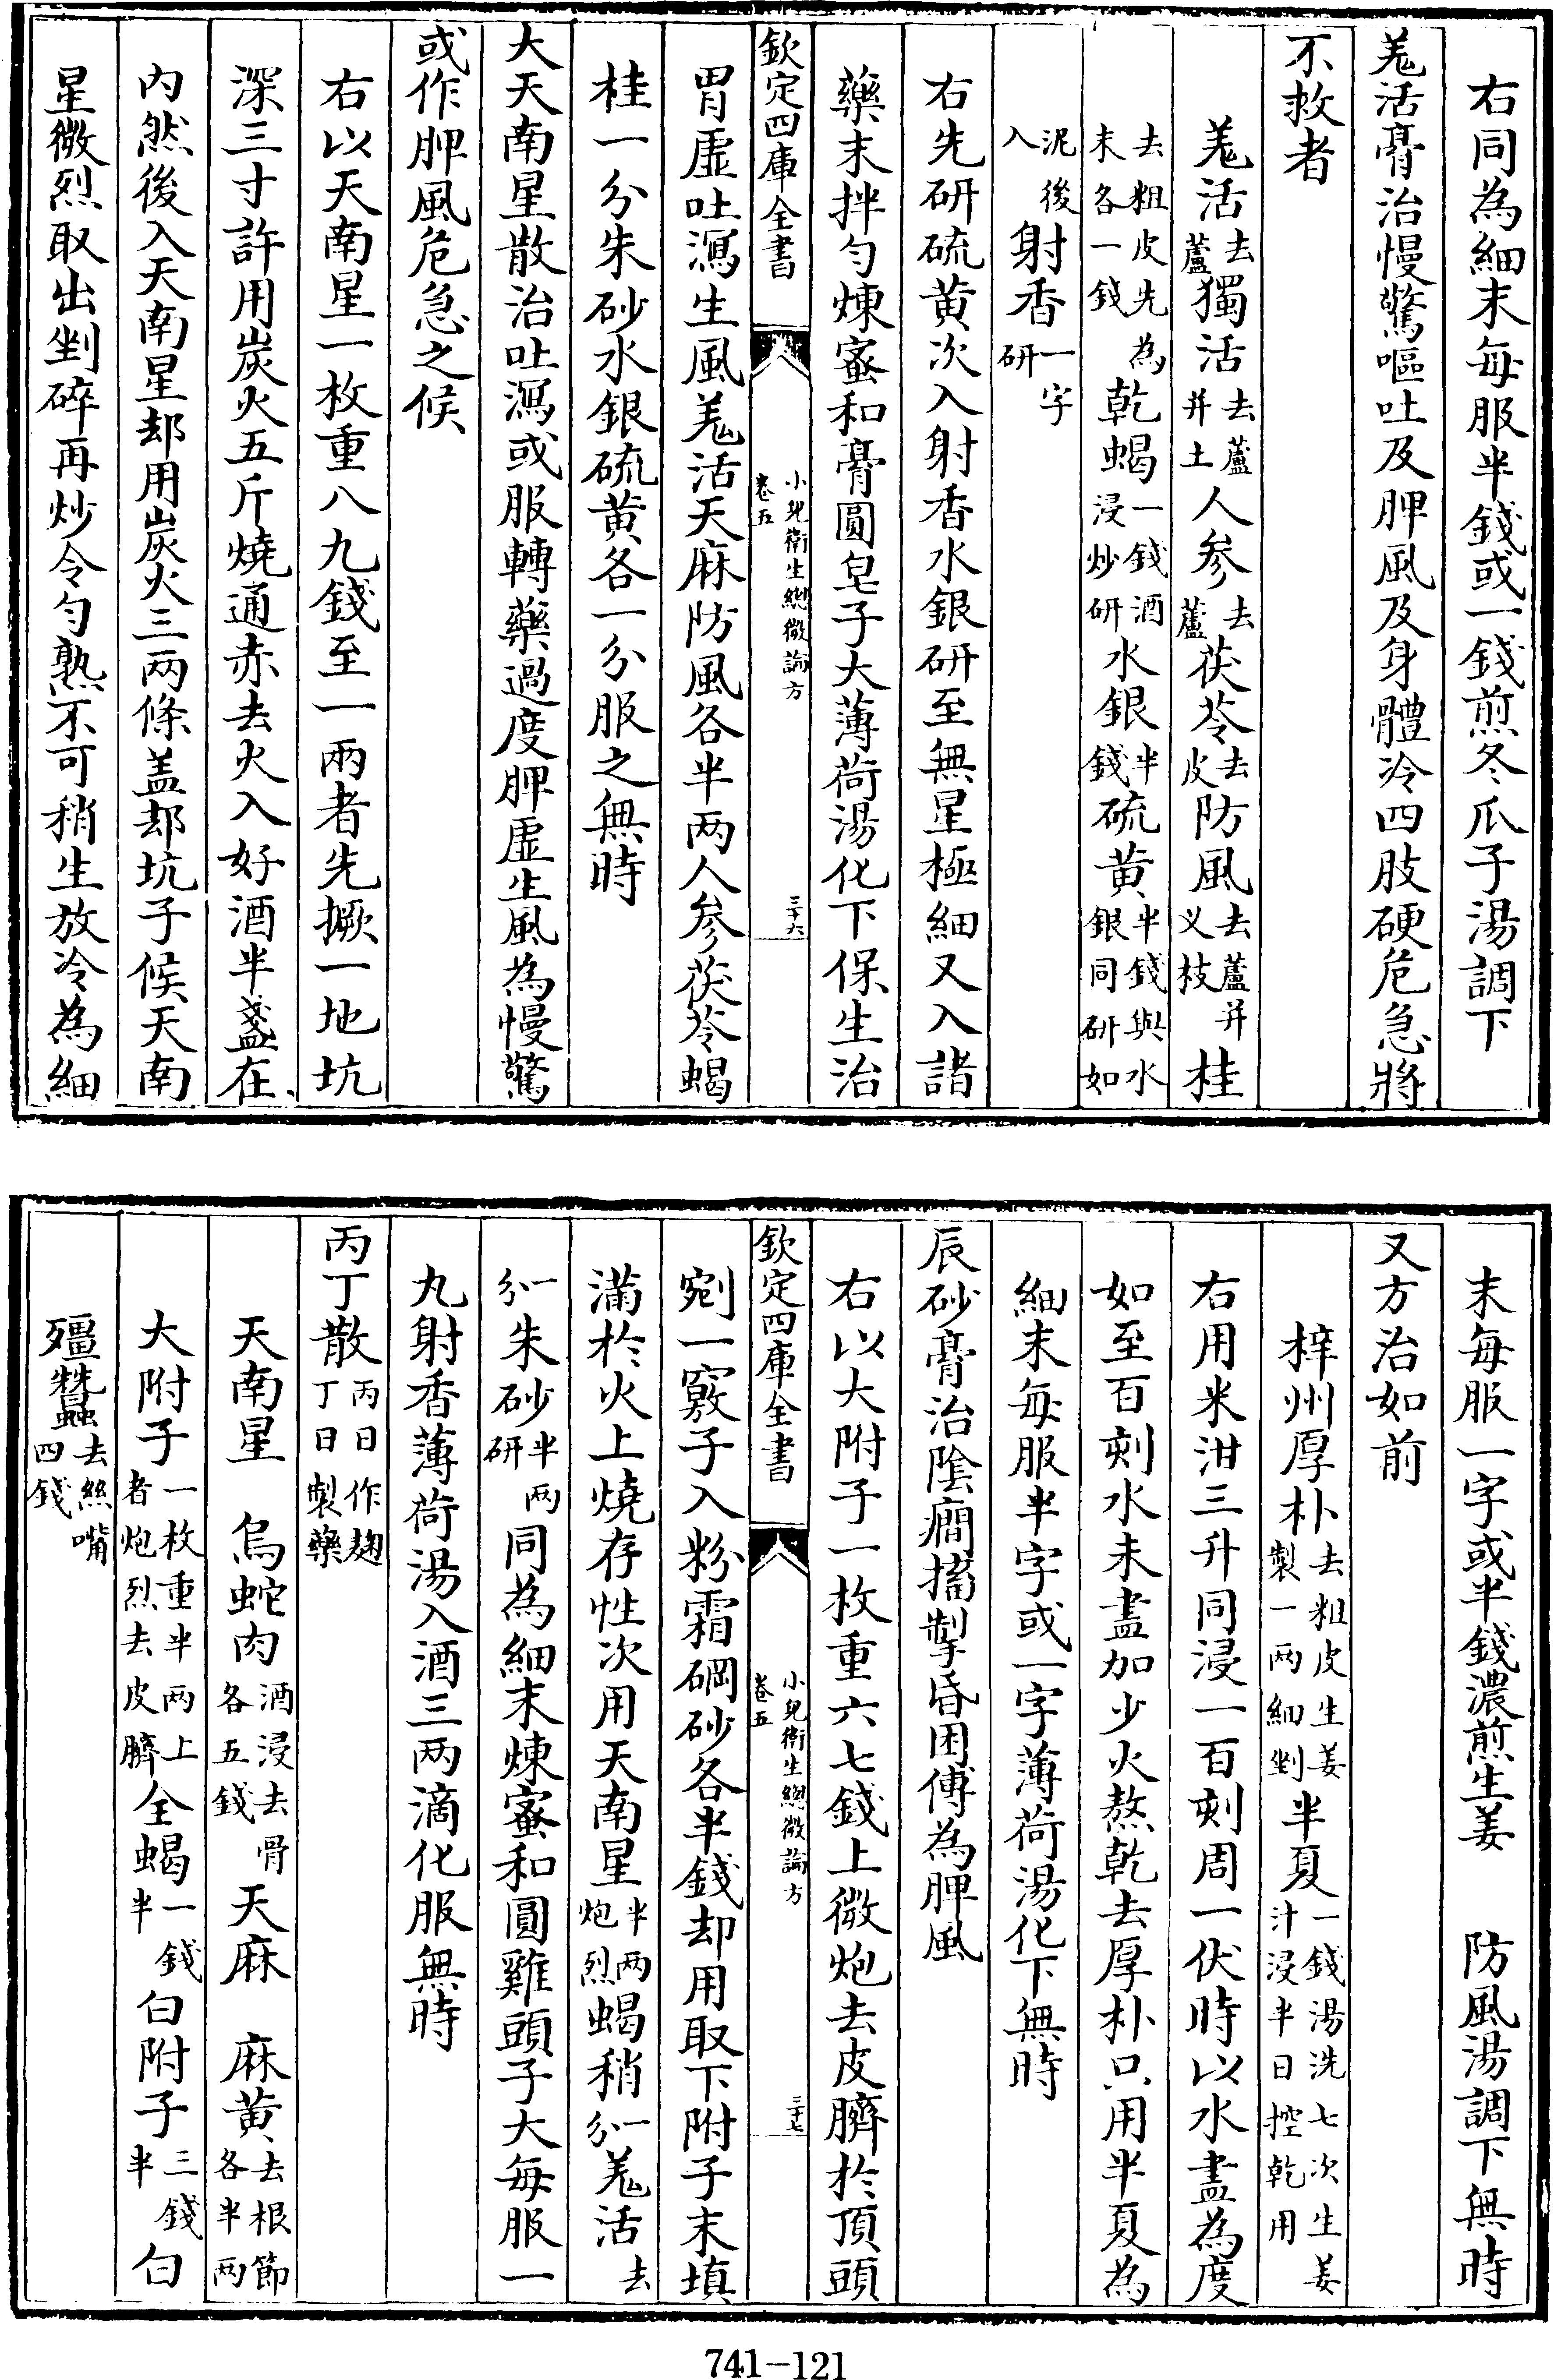 右同為細末每服半錢或一錢煎冬瓜子湯調下
羗活膏治慢驚嘔吐及脾風及身體冷四肢硬危急將
不救者
羗活去蘆獨活去蘆并土人參去蘆茯苓去皮防風去蘆并义枝桂
去粗皮先為末各一錢乾蝎一錢酒浸炒研水銀半錢硫黄半錢與水銀同研如
泥後入射香一字研
右先研硫黄次入射香水銀研至無星極細又入諸
藥末拌勻煉蜜和膏圓皂子大薄荷湯化下保生治
欽定四庫全書
小兒衛生總微論方
卷五
三十六
胃虛吐瀉生風羗活天麻防風各半两人參茯苓蝎
桂一分朱砂水銀硫黄各一分服之無時
大天南星散治吐瀉或服轉藥過度脾虛生風為慢驚
或作脾風危急之候
右以天南星一枚重八九錢至一兩者先撅一地坑
深三寸許用炭火五斤燒通赤去火入好酒半盞在
内然後入天南星却用炭火三两條盖却坑子候天南
星微烈取出剉碎再炒令勻熟不可稍生放冷為細
末每服一字或半錢濃煎生姜 防風湯調下無時
又方治如前
梓州厚朴去粗皮生姜製一两細剉半夏一錢湯洗七次生姜汁浸半日控乾用
右用米泔三升同浸一百刻周一伏時以水盡為度
如至百刻水未盡加少火熬乾去厚朴只用半夏為
細末每服半字或一字薄荷湯化下無時
辰砂膏治陰癎搐掣昏困傳為脾風
右以大附子一枚重六七錢上微炮去皮臍於頂頭
欽定四庫全書
小兒衛生總微論方
卷五
三十七
剜一竅子入粉霜硇砂各半錢却用取下附子末填
滿於火上燒存性次用天南星半两炮烈蝎稍一分羗活去
一分朱砂半两研同為細末煉蜜和圓雞頭子大每服一
丸射香薄荷湯入酒三两滴化服無時
丙丁散丙日作麹丁日製藥
天南星 烏蛇肉酒浸去骨各五錢 天麻 麻黄去根節各半两
大附子一枚重半两上者炮烈去皮臍全蝎一錢半白附子三錢半白
殭蠶去絲嘴四錢
741-121